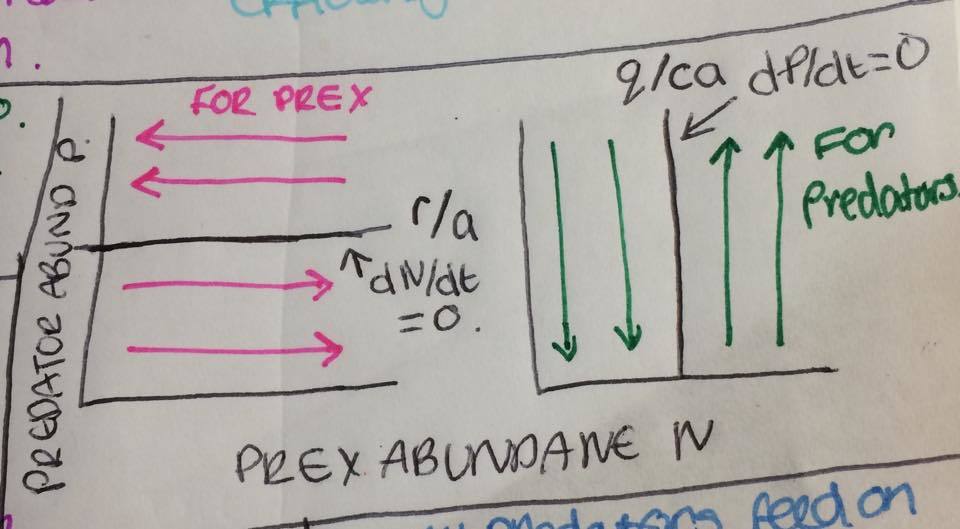 n.
FOR PREX
PREDATOR ABUND P.
r/a
dN/dt
=0.
q/ca dP/dt=0
FOR
predators.
PREX ABUNDANE N
feed on